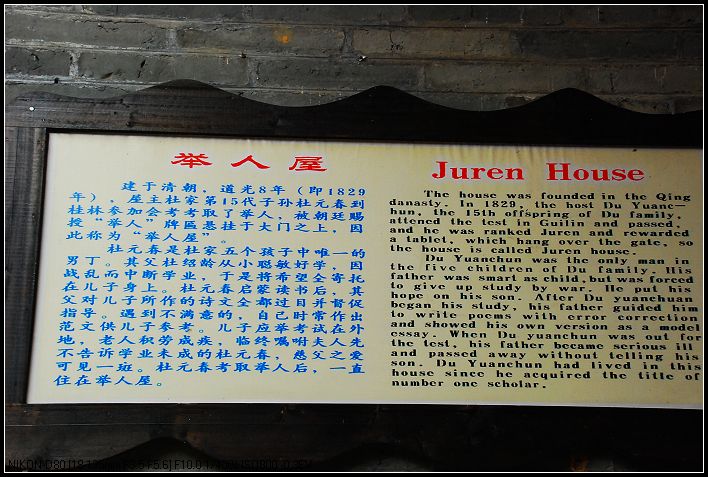 举人屋
建于清朝，道光8年（即1829
年），屋主杜家第15代子孙杜元春到
桂林参加会考考取了举人，被朝廷赐
授“举人”牌匾悬挂于大门之上，因
此称为“举人屋”。
杜元春是杜家五个孩子中唯一的
男丁。其父杜绍龄从小聪敏好学，因
战乱而中断学业，于是将希望全寄托
在儿子身上。杜元春启蒙读书后，其
父对儿子所作的诗文全都过目并督促
指导。遇到不满意的，自己时常作出
范文供儿子参考。儿子应举考试在外
地，老人积劳成疾，临终嘱咐夫人先
不告诉学业未成的杜元春，慈父之爱
可见一斑。杜元春考取举人后，一直
住在举人屋。
Juren House
The house was founded in the Qing
danasty. In 1829, the host Du Yuanc-
hun, the 15th offspring of Du family,
attened the test in Guilin and passed,
and he was ranked Juren and rewarded
a tablet, which hang over the gate, so
the house is called Juren house.
Du Yuanchun was the only man in
the five children of Du family. His
father was smart as child,but was forced
to give up study by war. He put his
hope on his son. After Du yuanchuan
began his study, his father guided him
to write poems with error correction
and showed his own version as a model
essay. When Du yuanchun was out for
the test, his father became serious ill
and passed away without telling his
son. Du Yuanchun had lived in this
house since he acquired the title of
number one scholar.